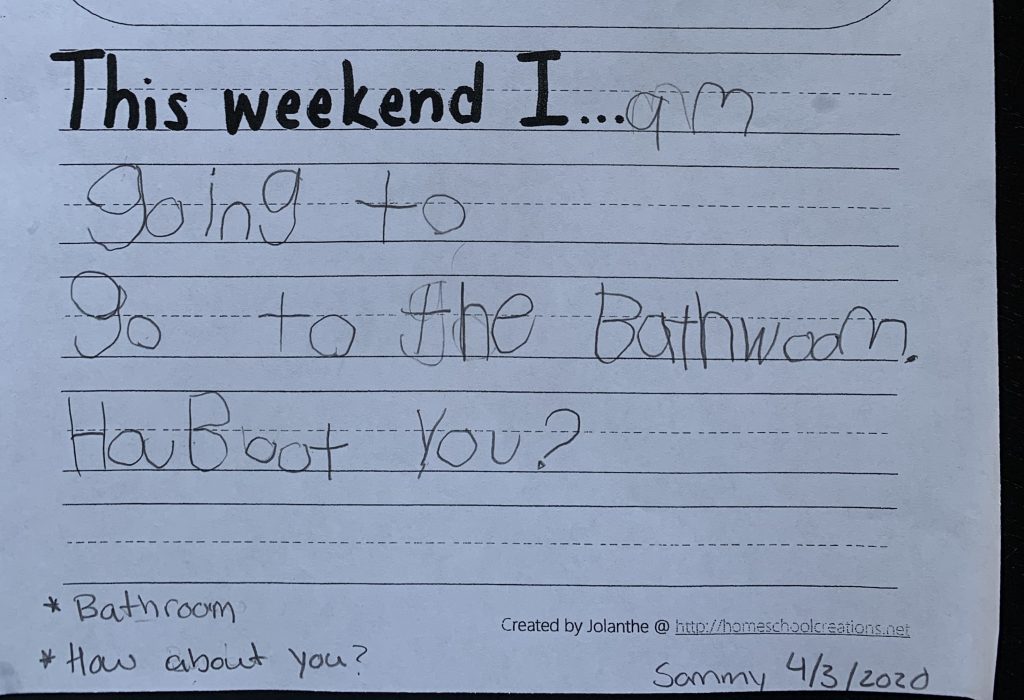 This weekend I...am
going to
go to the Bathwoom.
HouBoot You?
* Bathroom
Created by Jolanthe @ http://homeschoolcreations.net
* How about you?
Sammy 4/3/2020